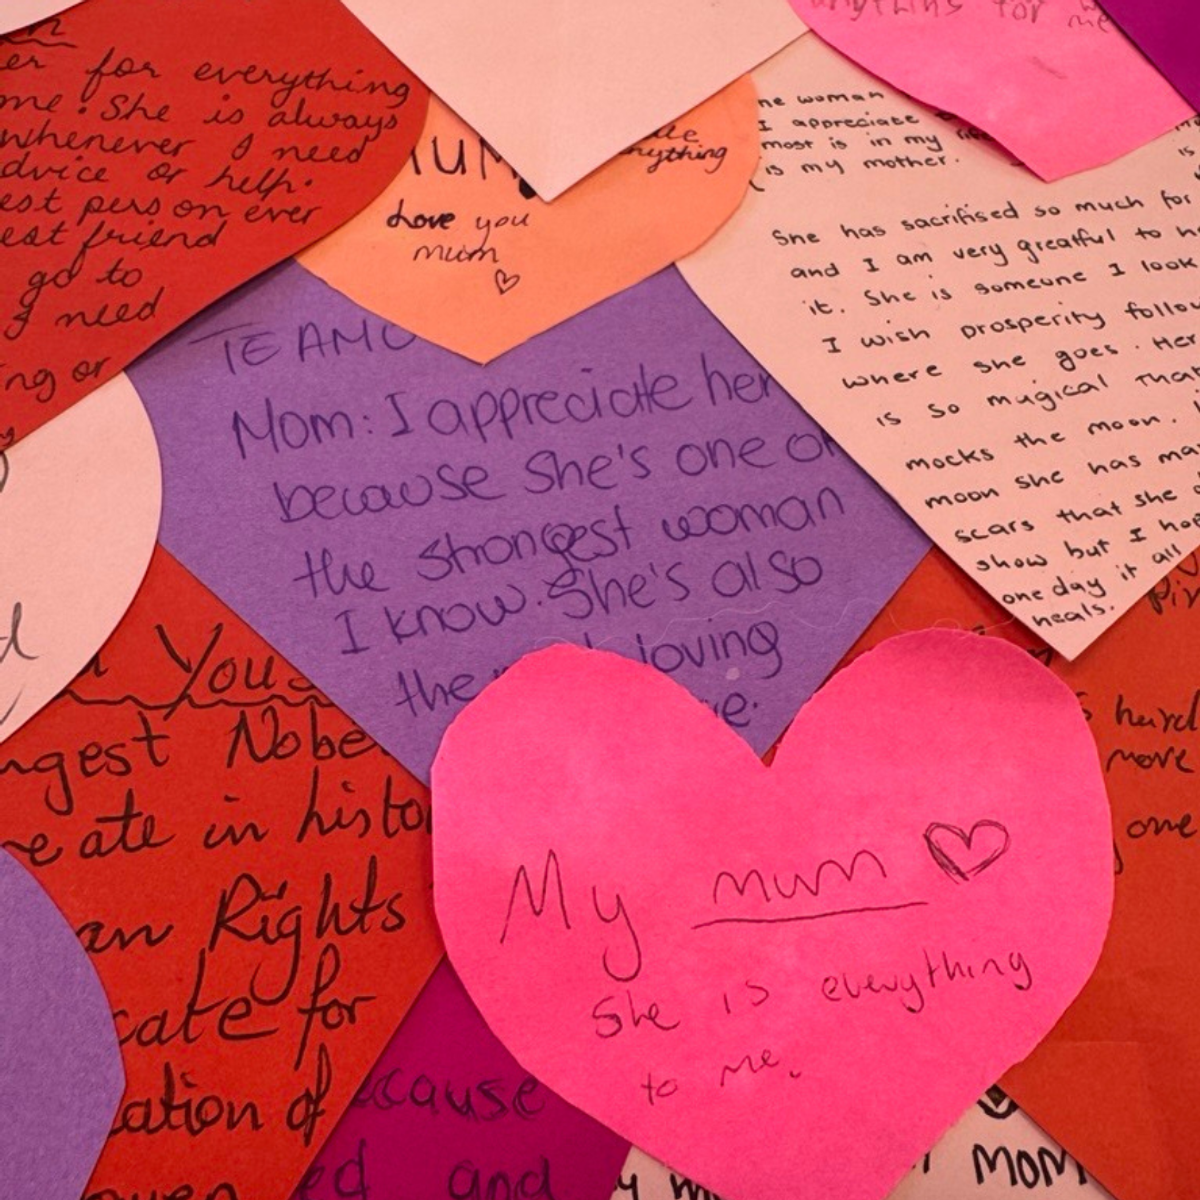 er for everything
me. She is always
whenever I need
dvice or help.
est person ever
est friend
go to
I need
ng or
MUM
anything
Love you
mum
anything for me
he woman
I appreciate
most is in my
is my mother.
is
She has sacrifised so much for
and I am very greatful to h
it. She is someone I look
I wish prosperity follow
where she goes. Her
is so magical that
mocks the moon.
moon she has ma
scars that she
show but I hop
one day it all
heals.
TE AMO
Mom: I appreciate her
because She's one of
the strongest woman
I know. She's also
the loving
e.
You
ngest Nobe
e ate in histo
an Rights
cate for
ation of
My mum
She is everything
to me.
hard
more
one
ecause
ed and
y m
MOM